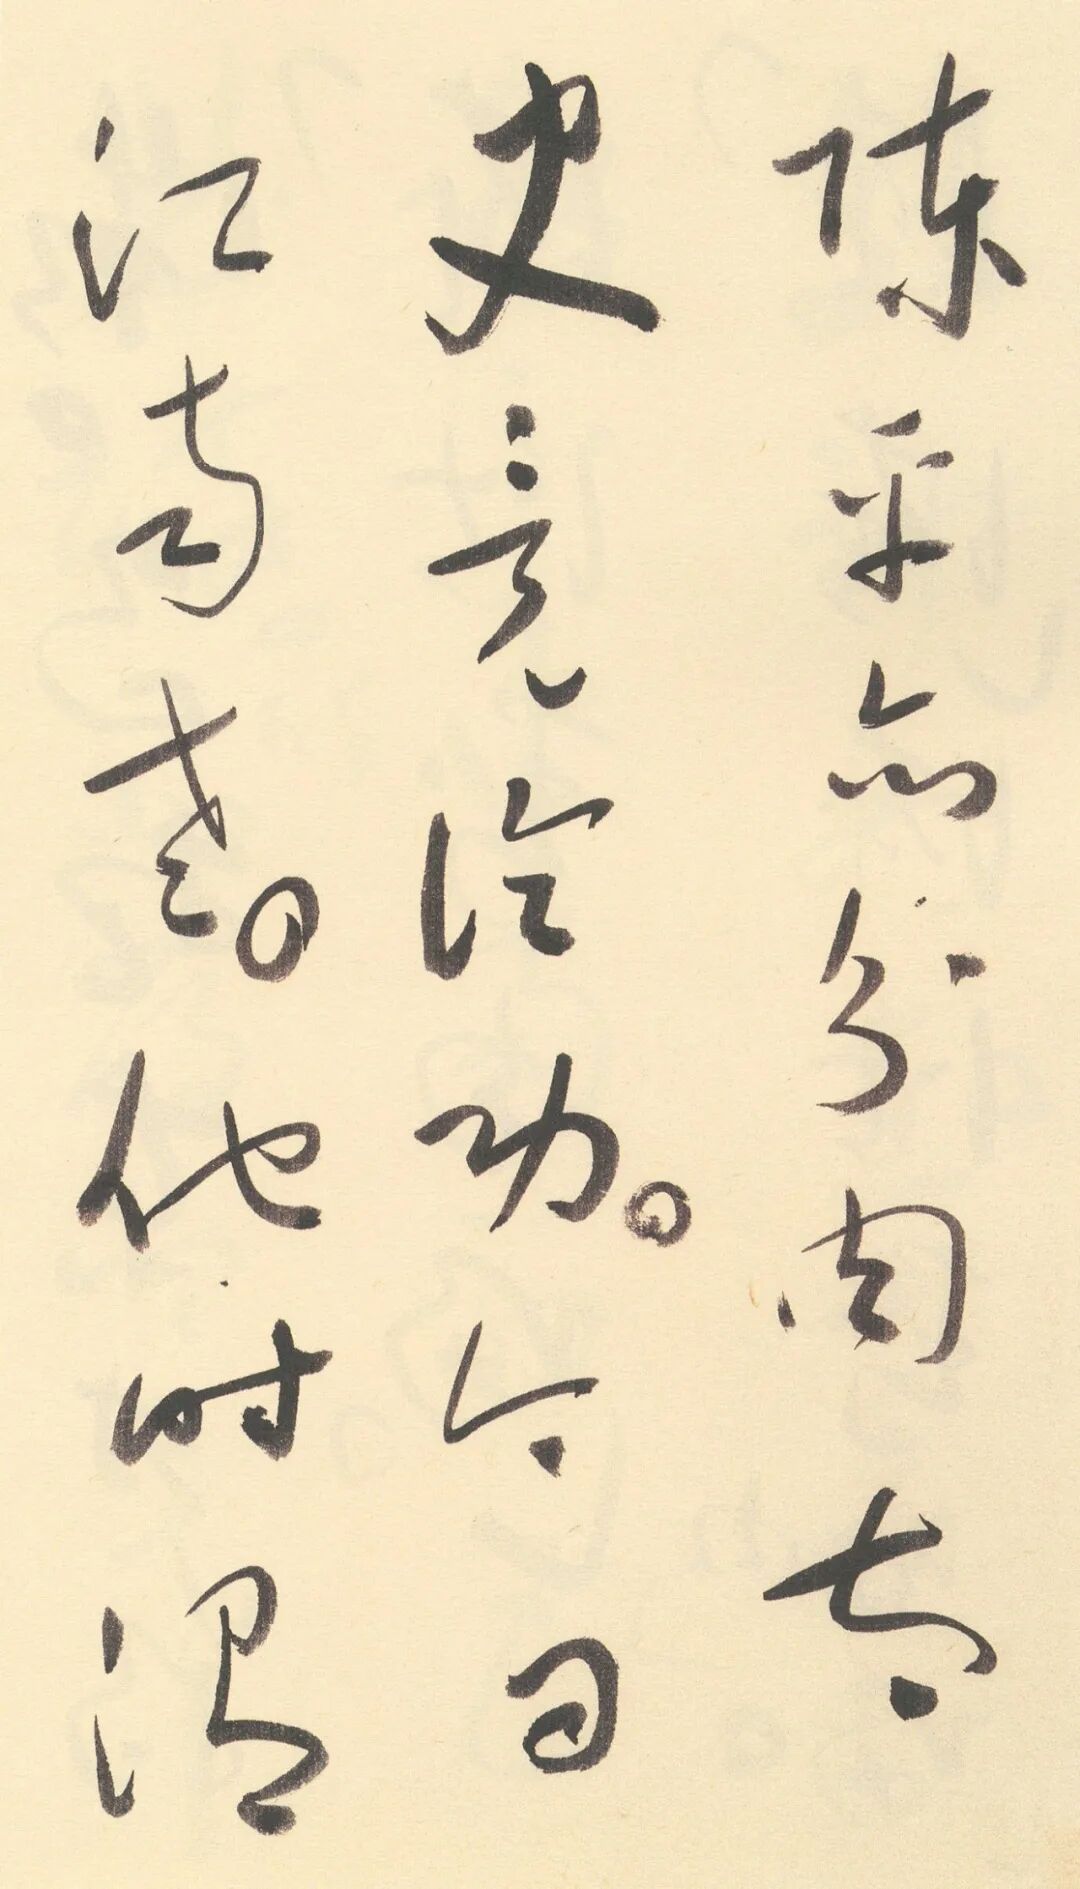 陈平亦分肉太
史竟论功。今日
江南老。他时渭